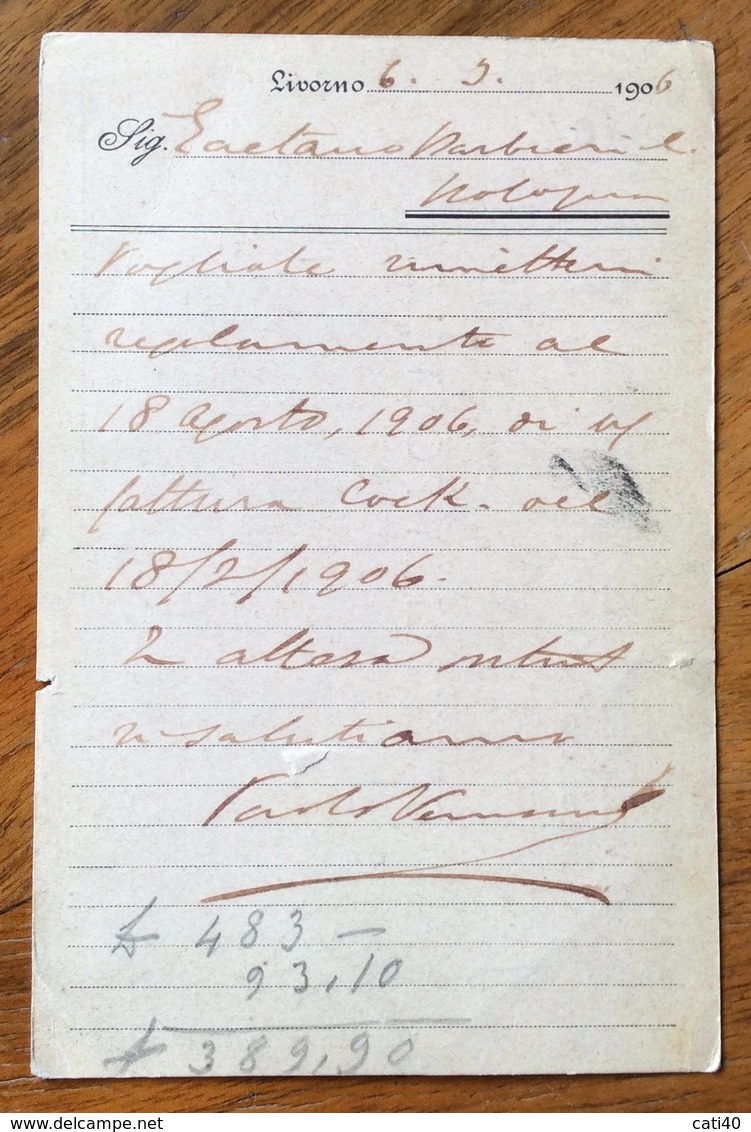 Livorno 6. 3. 1906
Sig. Gaetano Barbieri e C.
Bologna
Vogliate rimetterci
regolamento al
18 agosto, 1906, di
fattura Cock. del
18/2/1906.
In attesa
vi salutiamo
Paolo
£ 483 —
93,10
£ 389,90
cati40